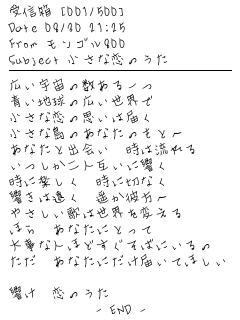 受信箱 [001/500]
Date 08/30 21:25
From モンゴル800
Subject 小さな恋のうた
広い宇宙の数ある一つ
青い地球の広い世界で
小さな恋の思いは届く
小さな島のあなたのもと〜
あなたと出会い 時は流れる
いつしか二人互いに響く
時に楽しく 時に切なく
響きは遠く 遥か彼方〜
やさしい歌は世界を変える
ほら あなたにとって
大事な人ほどすぐそばにいるの
ただ あなたにだけ届いてほしい
響け 恋のうた
- END -